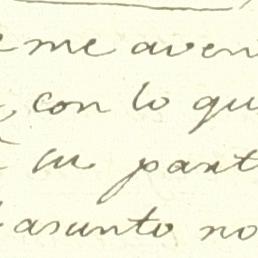 me aven
, con lo qu
tu part
asunto no